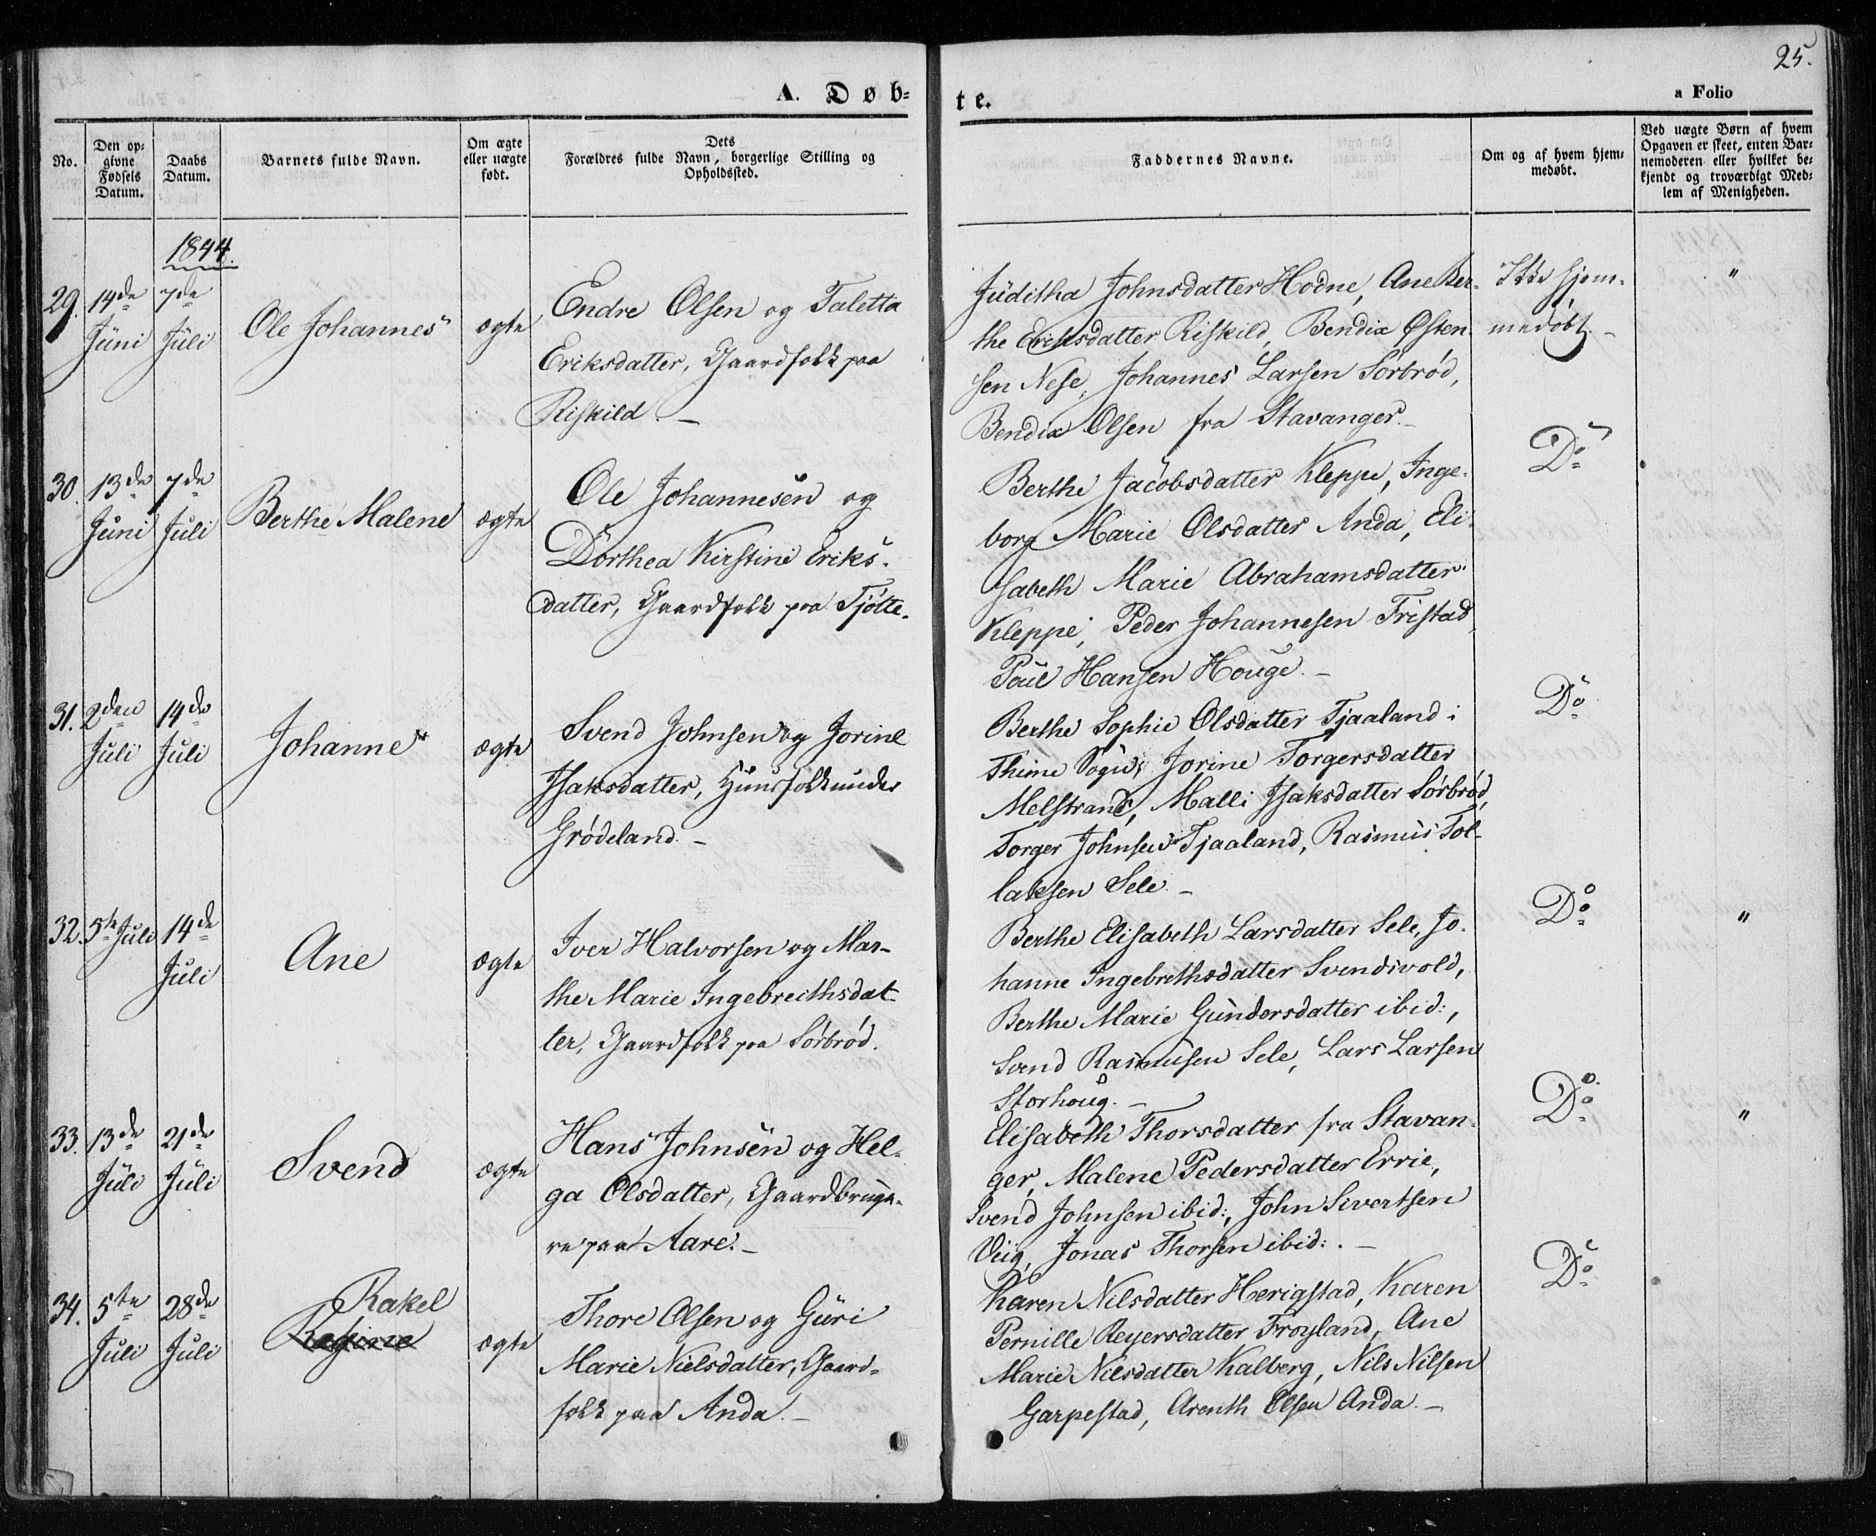 25.
A. Døb-
te.
a Folio
No.
Den op-
givne
Fødsels
Datum.
Daabs
Datum.
Barnets fulde Navn.
Om ægte
eller uægte
født.
Dets
Forældres fulde Navn, borgerlige Stilling og
Opholdssted.
Faddernes Navne.
Om og af hvem hjem-
medøbt.
Ved uægte Børn af hvem
Opgaven er skeet, enten Bar-
nemoderen eller hvilket be-
kjendt og troværdigt Med-
lem af Menigheden.
1844.
29. 14de Juni
7de Juli
Ole Johannes
ægte
Endre Olsen og Taletta
Eriksdatter, Gaardfolk paa
Riskild. –
Juditha Johnsdatter Hodne, Ane Ber-
the Eriksdatter Riskild, Bendix Østen-
sen Nese, Johannes Larsen Sørbrød,
Bendix Olsen fra Stavanger. –
Ikke hjem-
medøbt. –
"
30. 13de Juni
7de Juli
Berthe Malene
ægte
Ole Johannesen og
Dorthea Kirstine Eriks-
datter, Gaardfolk paa Tjøtte.
Berthe Jacobsdatter Kleppe, Inge-
borg Marie Olsdatter Anda, Eli-
sabeth Marie Abrahamsdatter
Kleppe, Peder Johannesen Fristad,
Poul Hansen Houge. –
Do
31. 2den Juli
14de Juli
Johanne
ægte
Svend Johnsen og Jorine
Isaksdatter, Huusfolk under
Grødeland. –
Berthe Sophie Olsdatter Tjaaland i
Thime Sogn, Jorine Torgersdatter
Melstrand, Malli Isaksdatter Sørbrød,
Torger Johnsen Tjaaland, Rasmus Tol-
laksen Sele. –
Do
32. 5te Juli
14de Juli
Ane
ægte
Iver Halvorsen og Mar-
the Marie Ingebreithsdat-
ter, Gaardfolk paa Sørbrød.
Berthe Elisabeth Larsdatter Sele, Jo-
hanne Ingebrethsdatter Svendsvold,
Berthe Marie Gundersdatter ibid:,
Svend Rasmusen Sele, Lars Larsen
Storhoug. –
Do
"
33. 13de Juli
21de Juli
Svend
ægte
Hans Johnsen og Hel-
ga Olsdatter, Gaardbruge-
re paa Aare. –
Elisabeth Thorsdatter fra Stavan-
ger, Malene Pedersdatter Errie,
Svend Johnsen ibid:, John Sivertsen
Viig, Jonas Thorsen ibid:. –
Do
"
34. 5te Juli
28de Juli
Rakel
ægte
Thore Olsen og Guri
Marie Nielsdatter, Gaard-
folk paa Anda. –
Karen Nilsdatter Herigstad, Karen
Pernille Reyersdatter Frøyland, Ane
Marie Nilsdatter Kalberg, Nils Nilsen
Garpestad, Arenth Olsen Anda. –
Do